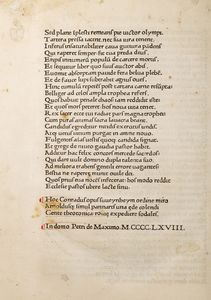 Sed plane ipse remeans pie uictor olympi
Tartara pressa iacent nec sua iura tenent
Inferni insaturabiliter caua guttura pandens
Qui rapere semper fit tua preda deus
Eripis innumerum populu de carcere mortis
Et sequitur liber quo suus auctor abit
Euomit absorptam pauide fera belua plebe
Et de fauce lupi subtrahit agnus oues
Hinc tumulu repetes post tartara carne resumpta
Belliger ad celos ampla trophea refers
Quos habuit penale chaos iam reddidit
Et quos mors peteret hos noua uita tenet
Rex sacer ecce tui radiat pars magna trophei
Cum puras animas lauacra beant
Candidus egreditur nitidis exercitus undis
Atq uetus uitium purgat in amne nouo
Fulgentes animas uestis quoq candida signat
Et grege de niueo gaudia pastor habet
Additur hac felix consors mercede sacerdos
Qui dare uult domino dupla talenta suo
Ad meliora trahens gentili errore uagantes
Bestia ne raperet munit ouile dei
Quos prius eua nocens infecerat hos modo reddit
Ecclesie pastor ubere lacte sinu
Hoc Conradus opus suueynheym ordine miro
Arnoldusq simul pannarts una ede colendi
Gente theotonica: rome expediere sodales.
In domo Petri de Maximo. M.CCCC.LXVIII.